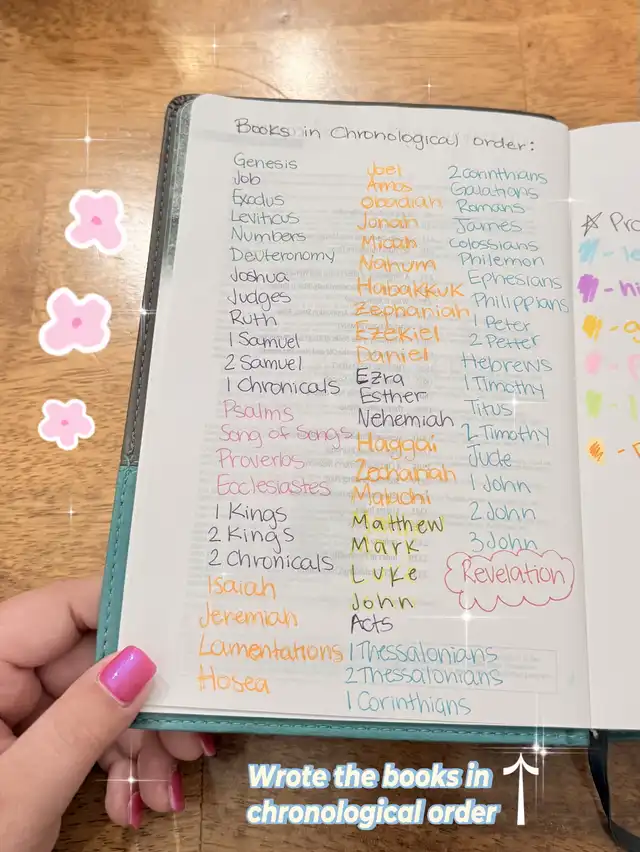 Books in Chronological order:
Genesis
Job
Exodus
Leviticus
Numbers
Deuteronomy
Joshua
Judges
Ruth
1 Samuel
2 Samuel
1 Chronicals
Psalms
Song of Songs
Proverbs
Ecclesiastes
1 Kings
2 Kings
2 Chronicals
Isaiah
Jeremiah
Lamentations
Hosea
Joel
Amos
Obadiah
Jonah
Micah
Nahum
Habakkuk
Zephaniah
Ezekiel
Daniel
Ezra
Esther
Nehemiah
Haggai
Zechariah
Malachi
Matthew
Mark
Luke
John
Acts
1 Thessalonians
2 Thessalonians
1 Corinthians
2 Corinthians
Galations
Romans
James
Colossians
Philemon
Ephesians
Philippians
1 Peter
2 Petter
Hebrews
1 Timothy
Titus
2 Timothy
Jude
1 John
2 John
3 John
Revelation
Wrote the books in
chronological order